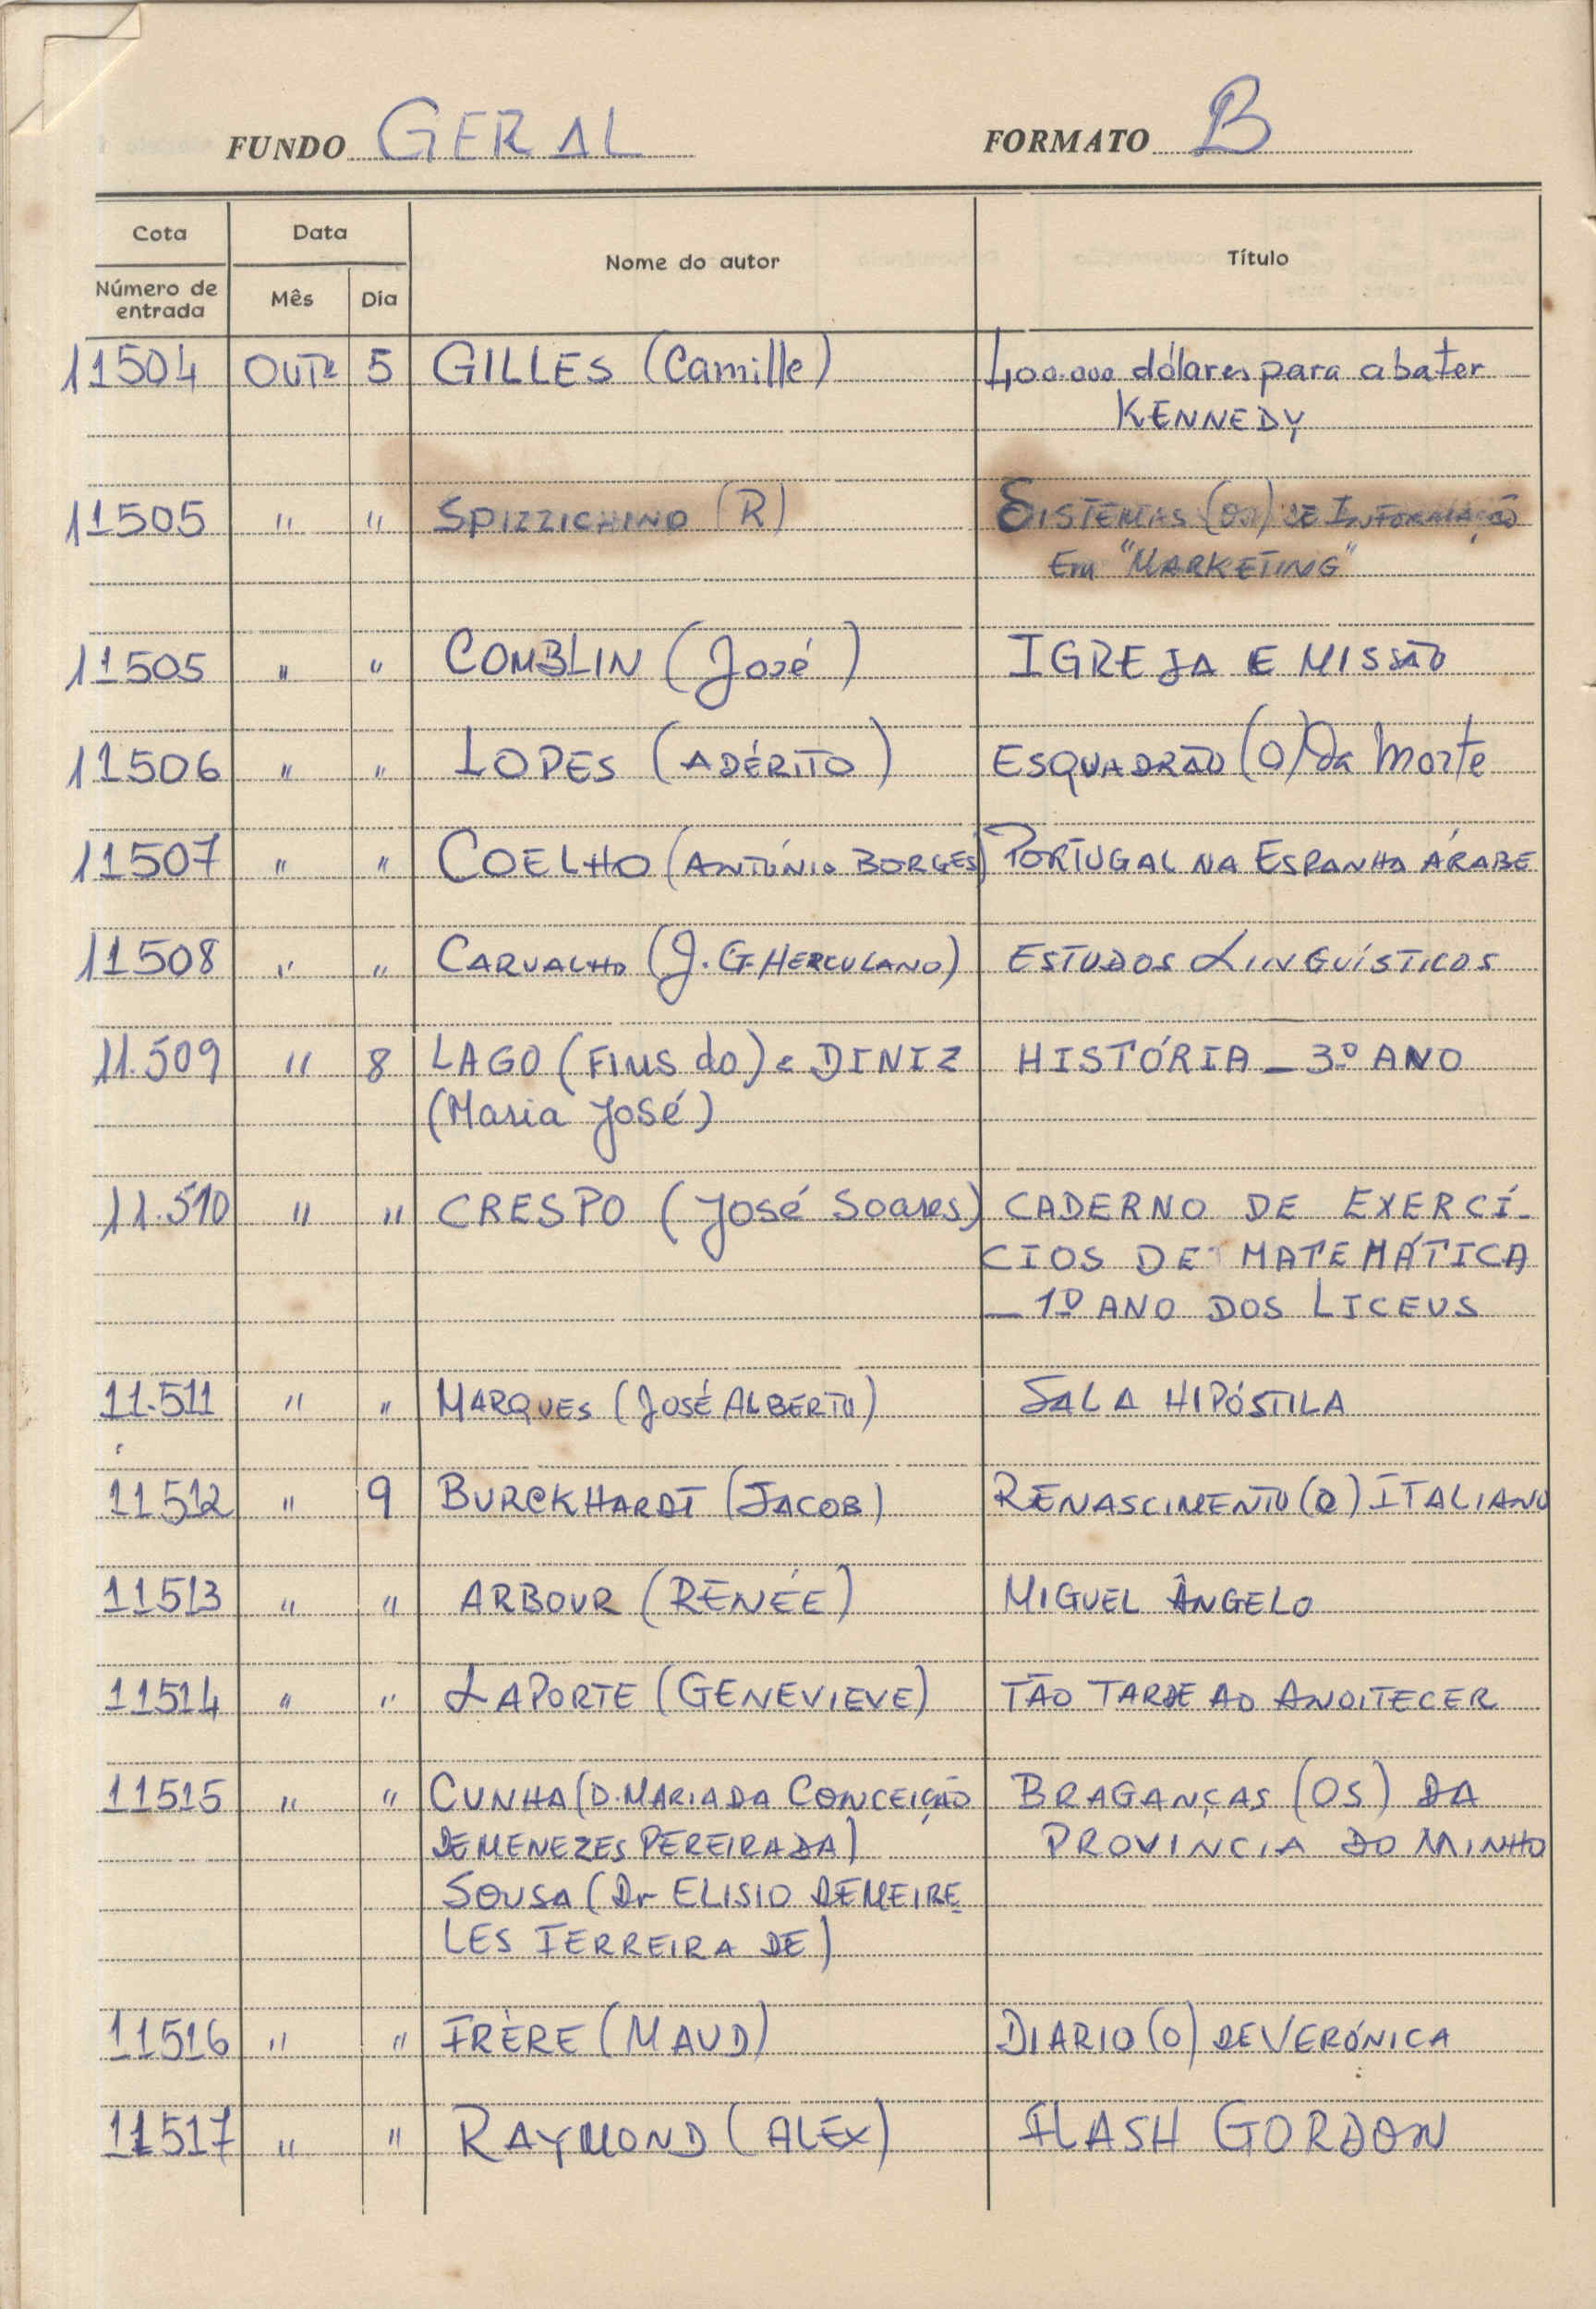 FUNDO GERAL FORMATO B
Cota Data Nome do autor Título
Número de entrada Mês Dia
11504 OUTº 5 GILLES (Camille) 400.000 dólares para abater
KENNEDY
11505 " " SPIZZICHINO (R) SISTEMAS (OS) DE INFORMAÇÃO
Em "MARKETING"
11505 " " COMBLIN (José) IGREJA E MISSÃO
11506 " " LOPES (ADÉRITO) ESQUADRÃO (O) Da Morte
11507 " " COELHO (ANTÓNIO BORGES) PORTUGAL NA ESPANHA ÁRABE
11508 " " CARVALHO (J. G. HERCULANO) ESTUDOS LINGUÍSTICOS
11.509 " 8 LAGO (FINS do) e DINIZ HISTÓRIA _ 3º ANO
(Maria José)
11.510 " " CRESPO (José Soares) CADERNO DE EXERCÍ-
CIOS DE MATEMÁTICA
_ 1º ANO DOS LICEUS
11.511 " " MARQUES (JOSÉ ALBERTO) SALA HIPÓSTILA
11512 " 9 BURCKHARDT (JACOB) RENASCIMENTO (O) ITALIANO
11513 " " ARBOUR (RENÉE) MIGUEL ÂNGELO
11514 " " LAPORTE (GENEVIEVE) TÃO TARDE AO ANOITECER
11515 " " CUNHA (D. MARIA DA CONCEIÇÃO BRAGANÇAS (OS) DA
DE MENEZES PEREIRA DA) PROVINCIA DO MINHO
SOUSA (Dr ELISIO DE MEIRE_
LES FERREIRA DE)
11516 " " FRÈRE (MAUD) DIARIO (O) DE VERÓNICA
11517 " " RAYMOND (ALEX) FLASH GORDON